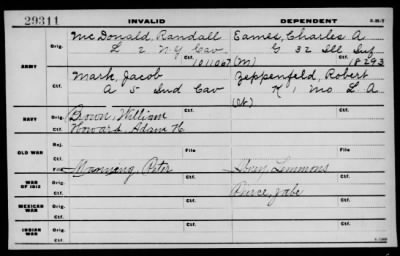 29311 INVALID DEPENDENT
ARMY
Orig. McDonald, Randall Eames, Charles A
L 2 N Y Cav G 32 Ill Inf
Ctf. 1011067 (M) Ctf. 18293
Orig. Mark, Jacob Zeppenfeld, Robert
A 5 Ind Cav K 1 Mo L. A
Ctf.
NAVY
Orig. William
Ctf. Howard, Adam H
OLD WAR
Rej.
Ctf. File
File Manning, Peter Lemmons
WAR OF 1812
Orig. Pierce, Jabe
Ctf.
MEXICAN WAR
Orig.
Ctf.
INDIAN WAR
Orig.
Ctf.